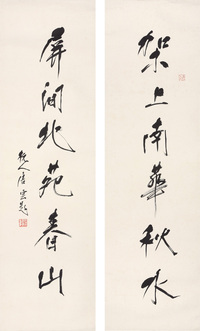 架上南華秋水
屏間北苑春山